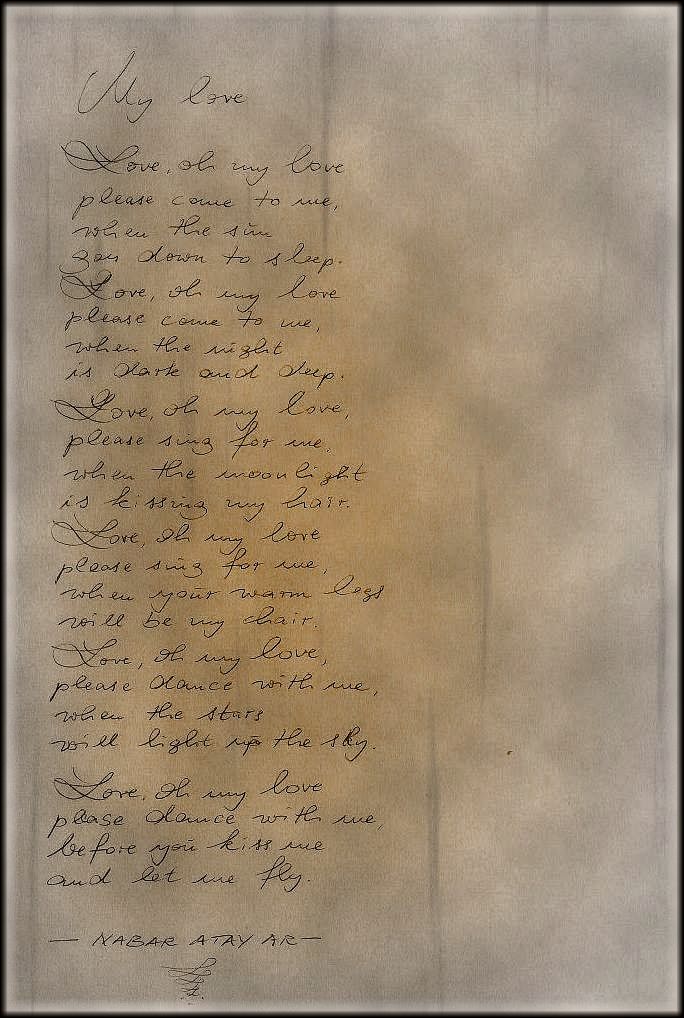 My love
Love, oh my love
please come to me,
when the sun
goes down to sleep.
Love, oh my love
please come to me,
when the night
is dark and deep.
Love, oh my love,
please sing for me,
when the moonlight
is kissing my hair.
Love, oh my love
please sing for me,
when your warm legs
will be my chair.
Love, oh my love,
please dance with me,
when the stars
will light up the sky.
Love, oh my love
please dance with me,
before you kiss me
and let me fly.
— NABAR ATAY AR —